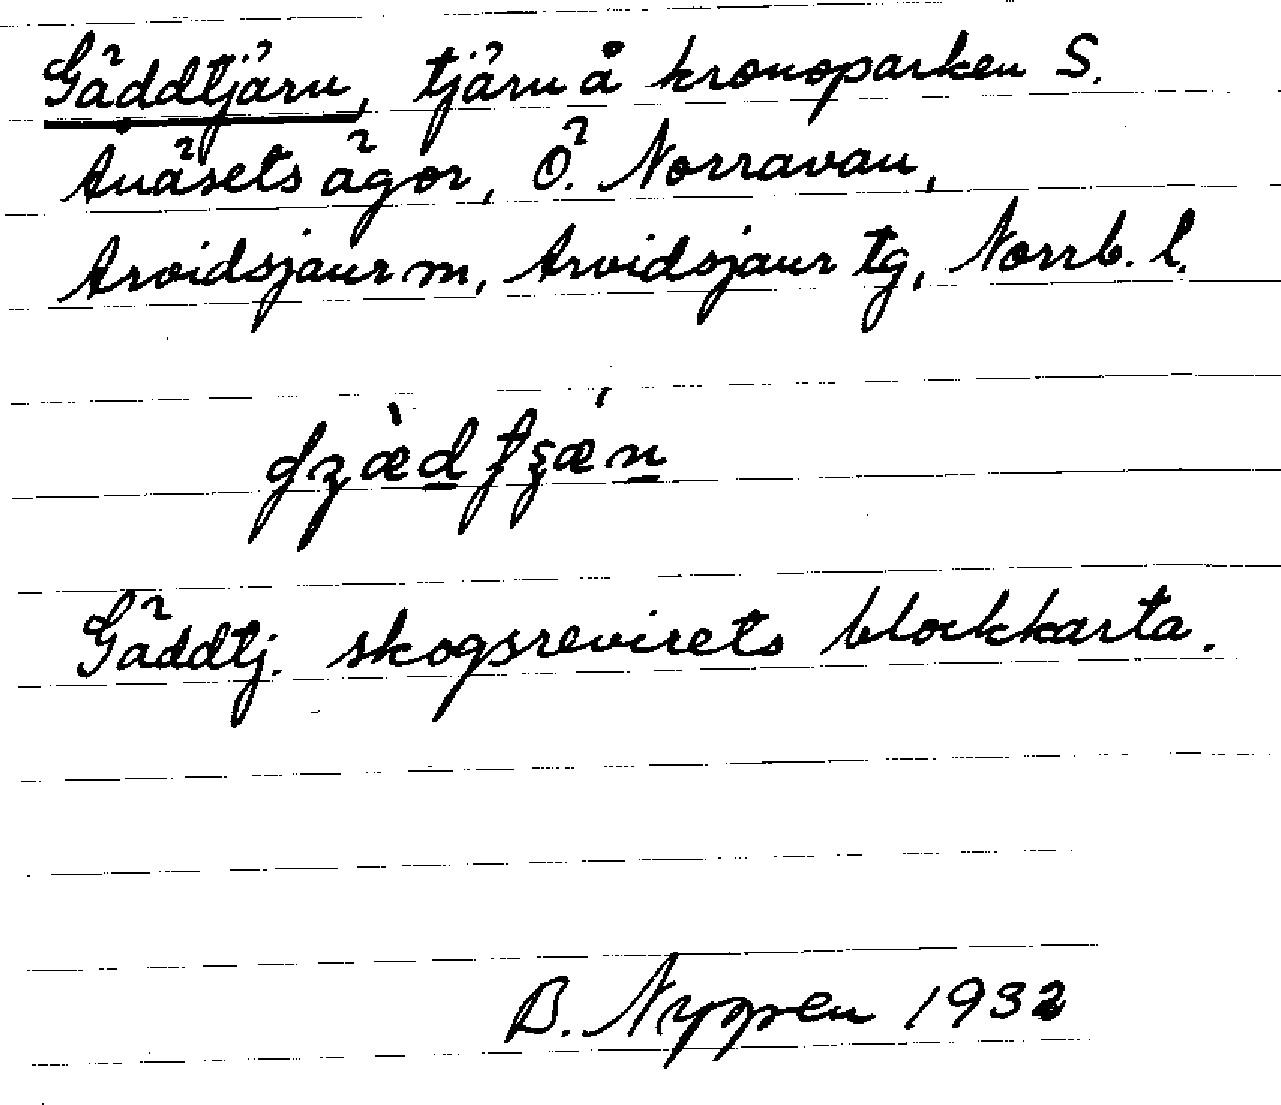 Gäddtjärn, tjärn å kronoparken S.
Anäsets ägor, Ö. Norravan,
Arvidsjaur m, Arvidsjaur tg, Norrb. l.
Gäddtj. skogsrevirets blockkarta.
B. Nygren 1932